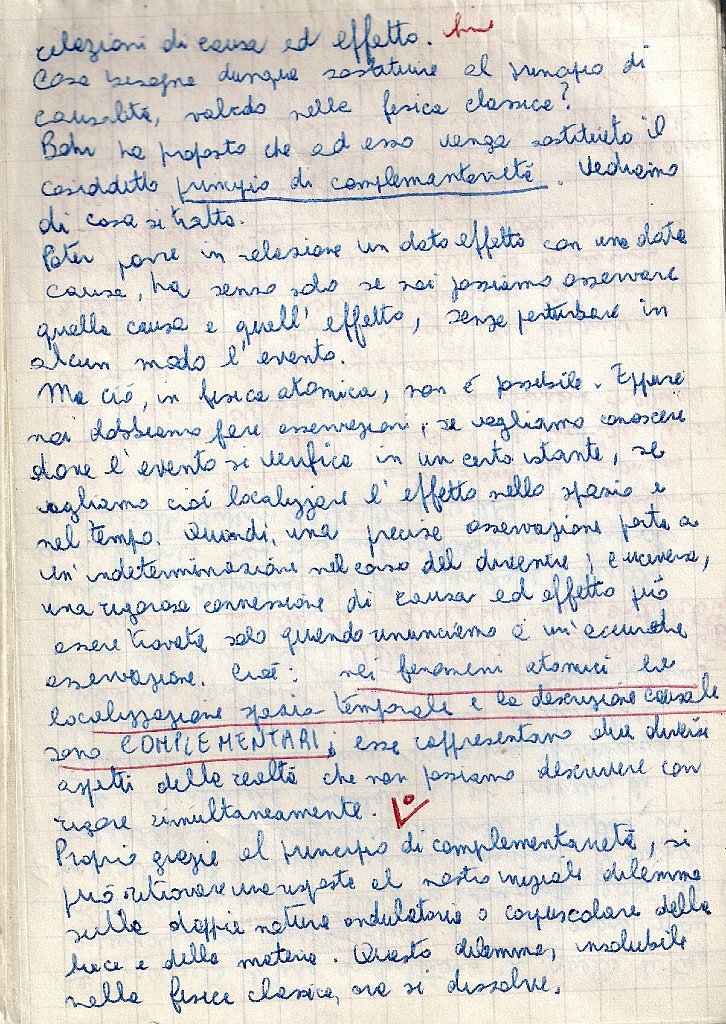 relazioni di causa ed effetto. fine
Cosa bisogna dunque sostituire al principio di
causalità, valido nella fisica classica?
Bohr ha proposto che ad esso venga sostituito il
cosiddetto principio di complementarietà. Vediamo
di cosa si tratta.
Poter porre in relazione un dato effetto con una data
causa, ha senso solo se noi possiamo osservare
quella causa e quell'effetto, senza perturbare in
alcun modo l'evento.
Ma ciò, in fisica atomica, non è possibile. Eppure
noi dobbiamo fare osservazioni, se vogliamo conoscere
dove l'evento si verifica in un certo istante, se
vogliamo cioè localizzare l'effetto nello spazio e
nel tempo. Quindi, una precisa osservazione porta a
un'indeterminazione nel corso del divenire; e viceversa,
una rigorosa connessione di causa ed effetto può
essere trovata solo quando rinunciamo a un'accurata
osservazione. Cioè: nei fenomeni atomici la
localizzazione spazio temporale e la descrizione causale
sono COMPLEMENTARI; esse rappresentano due diversi
aspetti della realtà che non possiamo descrivere con
rigore simultaneamente. V°
Proprio grazie al principio di complementarietà, si
può ritrovare una risposta al nostro iniziale dilemma
sulla doppia natura ondulatoria o corpuscolare della
luce e della materia. Questo dilemma, insolubile
nella fisica classica, ora si dissolve.